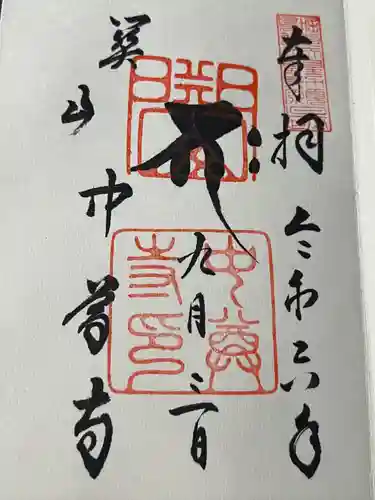 奉拝
令和六年
九月三日
関山
中尊寺
關山
中尊寺印